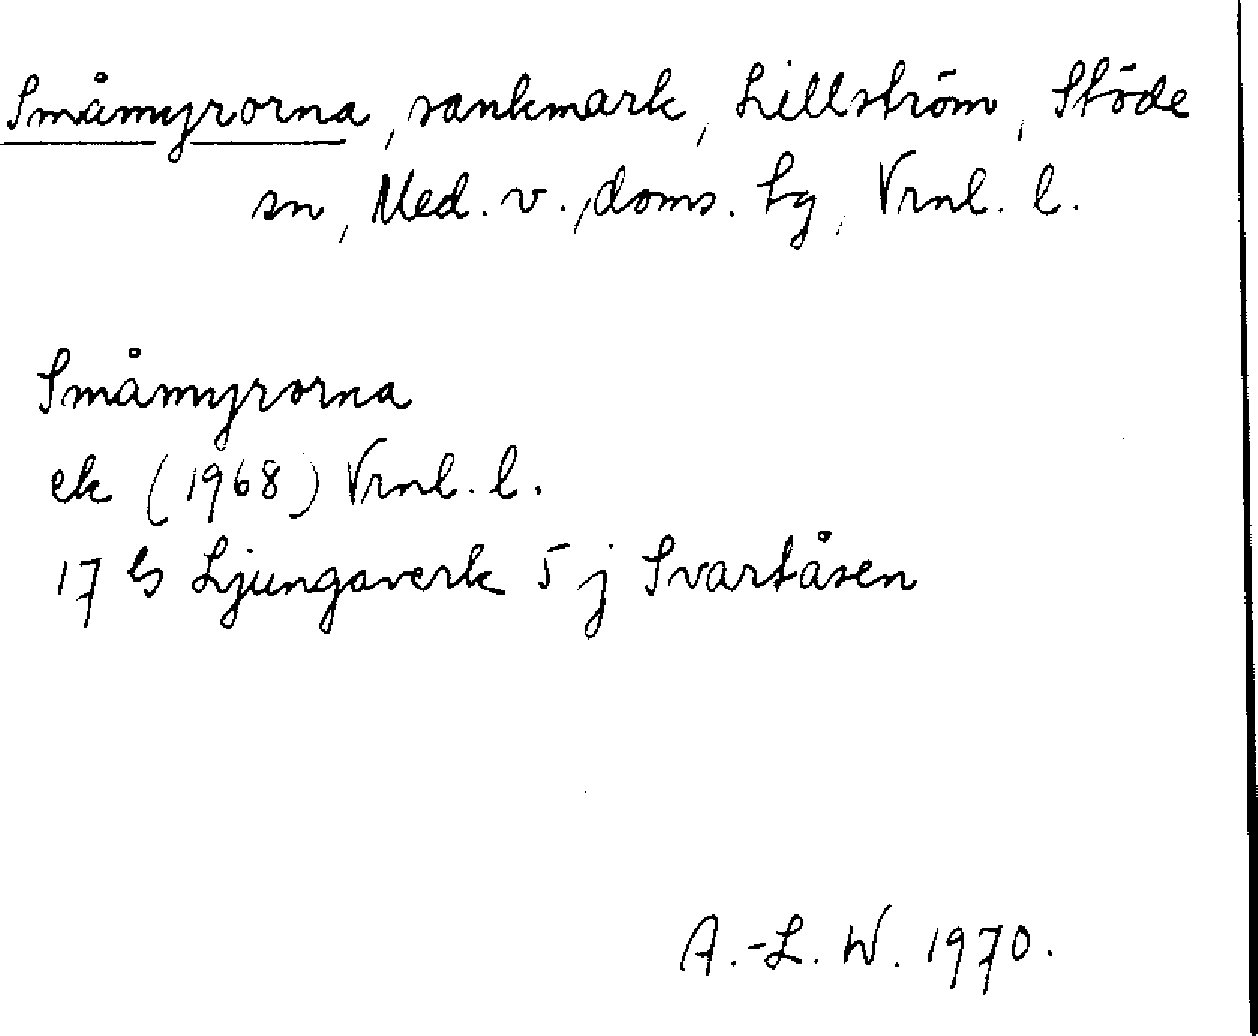 Småmyrorna, sankmark, Lillström, Stöde
sn, Med. v., doms. hg, Vrnl. l.
Småmyrorna
ek (1968) Vrnl. l.
17 G Ljungaverk 5 j Svartåsen
A.-L. W. 1970.